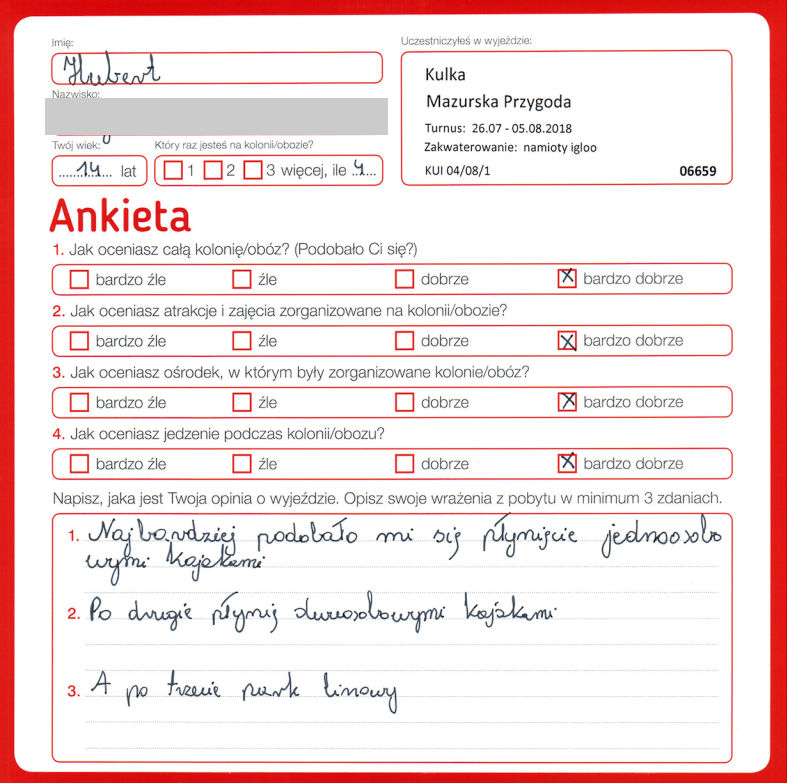 Imię:
Hubert
Nazwisko:
Twój wiek:
14 lat
Który raz jesteś na kolonii/obozie?
1 2 3 więcej, ile 4
Uczestniczyłeś w wyjeździe:
Kulka
Mazurska Przygoda
Turnus: 26.07 - 05.08.2018
Zakwaterowanie: namioty igloo
KUI 04/08/1 06659
Ankieta
1. Jak oceniasz całą kolonię/obóz? (Podobało Ci się?)
bardzo źle źle dobrze X bardzo dobrze
2. Jak oceniasz atrakcje i zajęcia zorganizowane na kolonii/obozie?
bardzo źle źle dobrze X bardzo dobrze
3. Jak oceniasz ośrodek, w którym były zorganizowane kolonie/obóz?
bardzo źle źle dobrze X bardzo dobrze
4. Jak oceniasz jedzenie podczas kolonii/obozu?
bardzo źle źle dobrze X bardzo dobrze
Napisz, jaka jest Twoja opinia o wyjeździe. Opisz swoje wrażenia z pobytu w minimum 3 zdaniach.
1. Najbardziej podobało mi się płynięcie jednoosobo
wymi kajakami
2. Po drugie płynię dwuosobowymi kajakami
3. A po trzecie park linowy